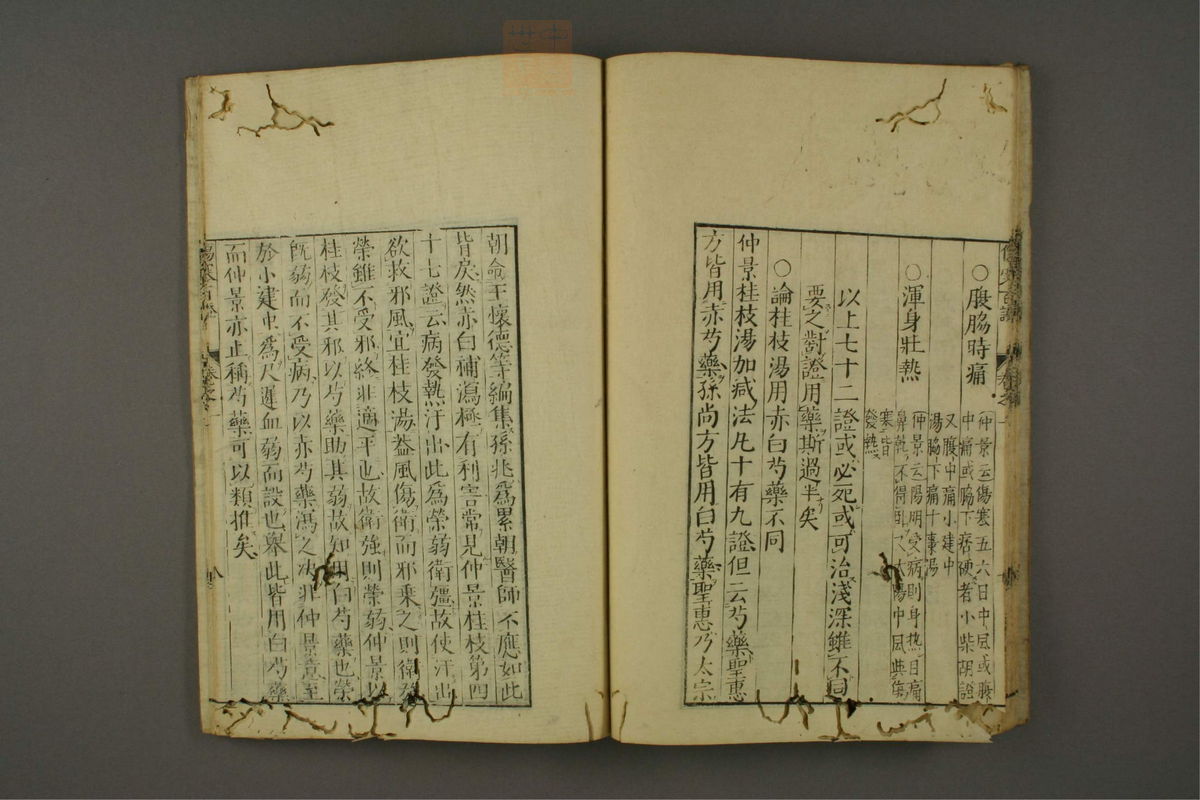 ○腹脇時痛
仲景云傷寒五六日中風或腹
中痛或脇下痞硬者小柴胡證
又腹中痛小建中
湯脇下痛十棗湯
○渾身壯熱
仲景云陽明受病則身热目痛
鼻乾不得臥又太陽中風與傷
寒皆
發熱
以上七十二證或必死或可治淺深雖不同
要之對證用藥斯過半矣
○論桂枝湯用赤白芍藥不同
仲景桂枝湯加减法凡十有九證但云芍藥聖惠
方皆用赤芍藥孫尚方皆用白芍藥聖惠乃太宗
朝命王懷德等編集孫兆爲累朝醫師不應如此
皆戾然赤白補瀉極有利害常見仲景桂枝第四
十七證云病發熱汗出此為榮弱衛彊故使汗出
欲救邪風宜桂枝湯葢風傷衛而邪乗之則衛強
榮雖不受邪終非適平也故衛強則榮弱仲景以
桂枝發其邪以芍藥助其弱故知用白芍藥也榮
既弱而不受病乃以赤芍藥瀉之决非仲景意至
於小建中爲尺遲血弱而設也舉此皆用白芍藥
而仲景亦止稱芍藥可以類推矣